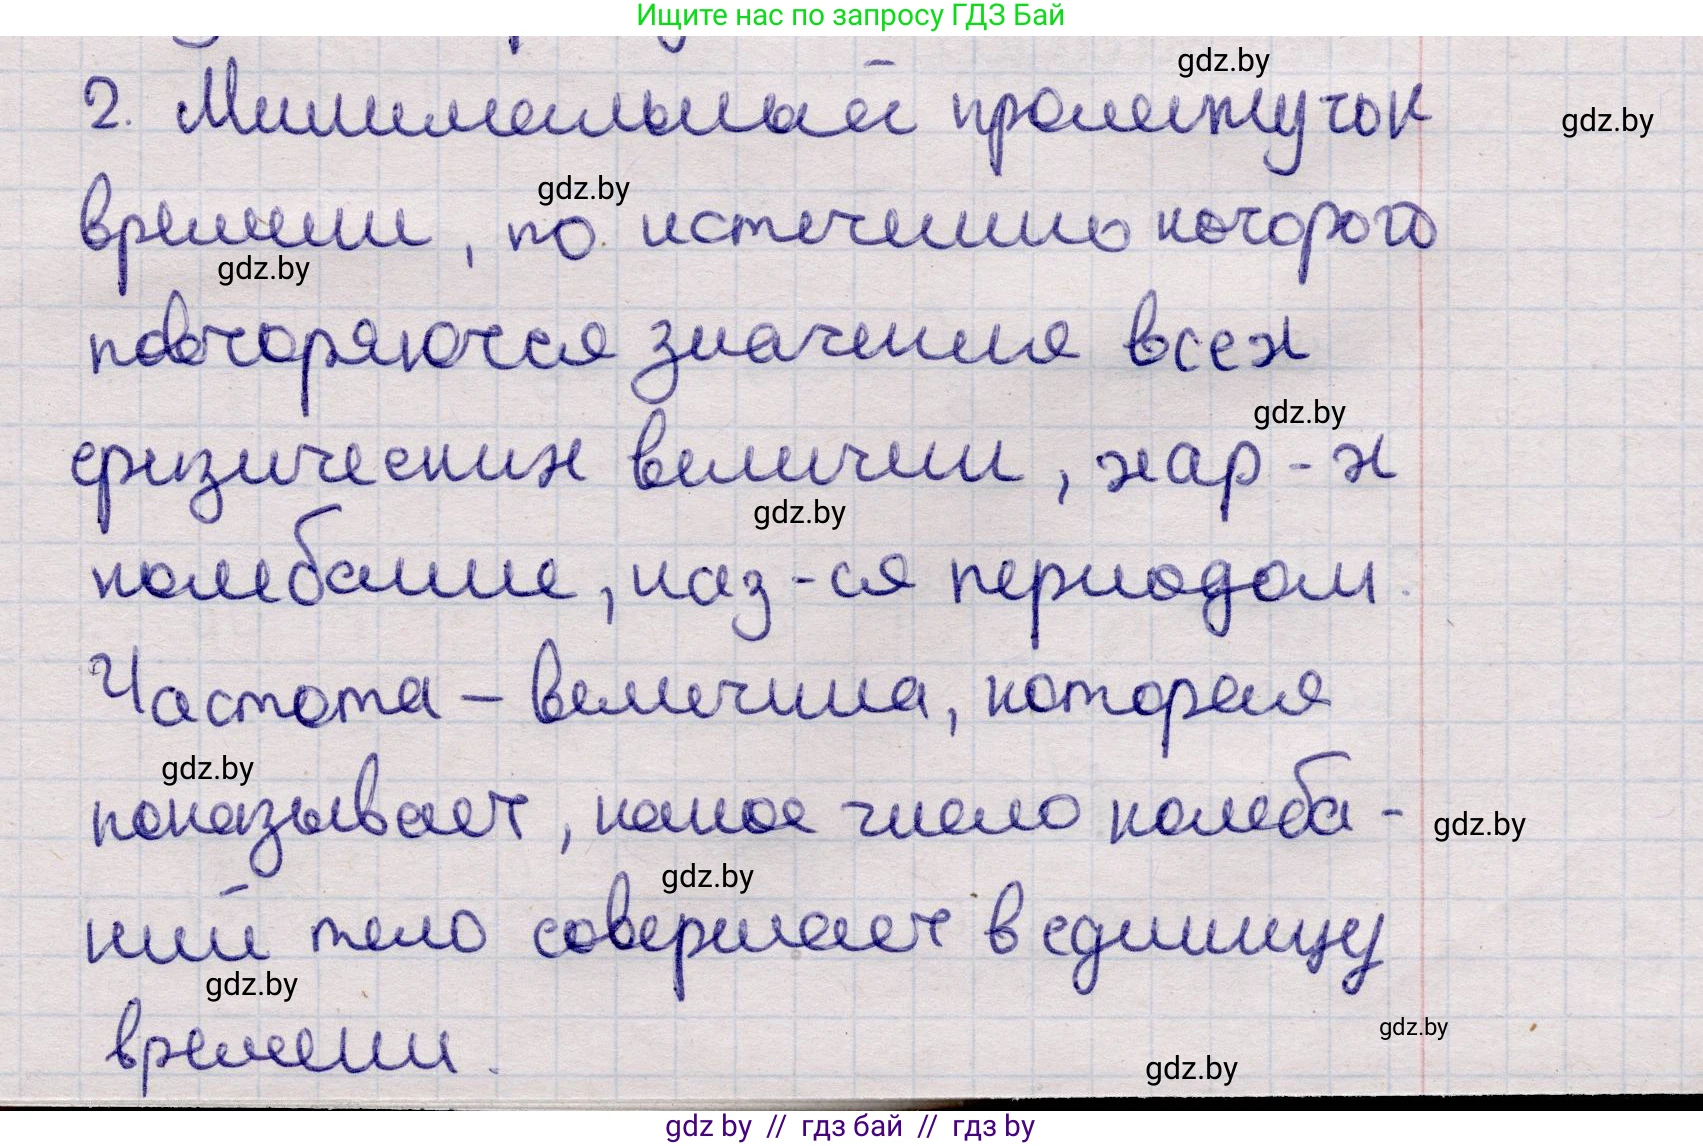 Ищите нас по запросу ГДЗ Бай
gdz.by
2. Минимальный промежуток
gdz.by
gdz.by
времени, по истечению которого
gdz.by
повторяются значения всех
gdz.by
физических величин, хар-х
gdz.by
колебание, наз-ся периодом.
Частота – величина, которая
gdz.by
показывает, какое число колеба-
gdz.by
gdz.by
ний тело совершает в единицу
gdz.by
времени.
gdz.by
gdz.by
gdz by // гдз бай // гдз by